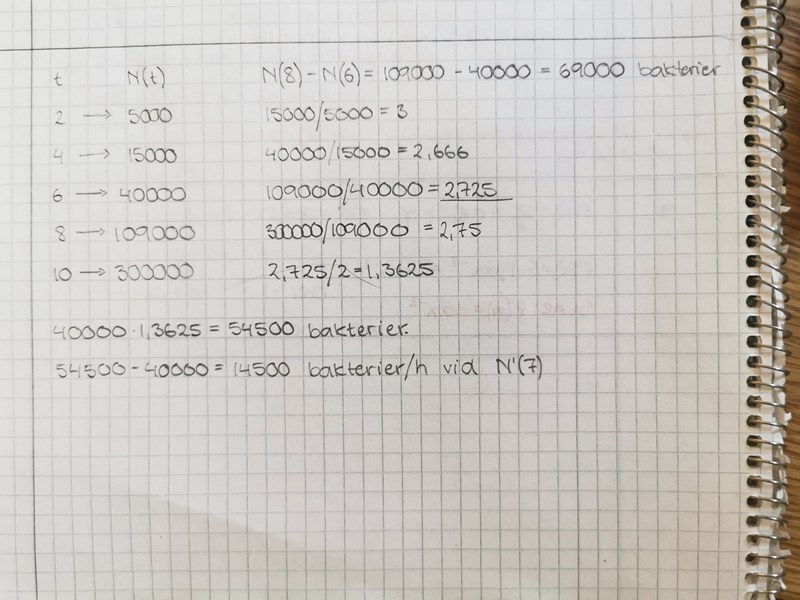 t N(t) N(8) - N(6) = 109000 - 40000 = 69000 bakterier
2 → 5000 15000/5000 = 3
4 → 15000 40000/15000 = 2,666
6 → 40000 109000/40000 = 2,725
8 → 109000 300000/109000 = 2,75
10 → 300000 2,725/2 = 1,3625
40000 · 1,3625 = 54500 bakterier.
54500 - 40000 = 14500 bakterier/h vid N'(7)